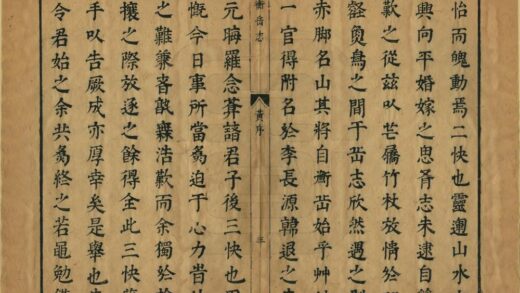 怡而魄動焉二快也靈邇山水
興向平婚嫁之思胥志未逮自
歎之從茲㠯芒屩竹杖放情於
壑魚鳥之間于岳志欣然遇之則
赤脚名山其將自衡岳始乎艸
一官得附名於李長源韓退之
衡岳志
黃序
三
元晦羅念菴諸君子後三快也
慨今日事所當爲迫于心力
之難兼浩歎而余獨於
攘之際放逐之餘得全此三快
手㠯告厥成亦厚幸矣是舉也
令君始之余共爲終之若黽勉